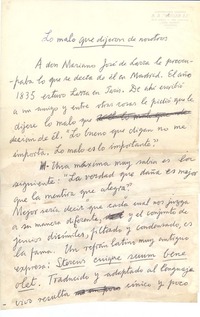 Lo malo que dijeron de nosotros
A don Mariano José de Larra le preocu-
paba lo que se decía de él en Madrid. El año
1835 estuvo Larra en París. De ahí escribió
a un amigo y entre otras cosas le pidió que le
dijera lo malo que
decían de él. "Lo bueno que digan no me
importa. Lo malo es lo importante".
Una máxima muy sabia es la
siguiente: "La verdad que daña es mejor
que la mentira que alegra".
Mejor sería decir que cada cual nos juzga
a su manera diferente, y el conjunto de
juicios disímiles, filtrado y condensado, es
la forma. Un refrán latino muy antiguo
expresa: Stercus cuique suum bene
olet. Traducido y adaptado al lenguaje
vivo resulta cínico y poco